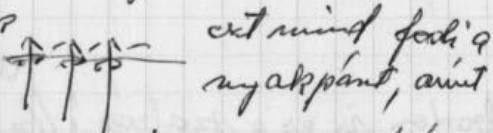 ezt mind fedi a
nyakpánt, amit